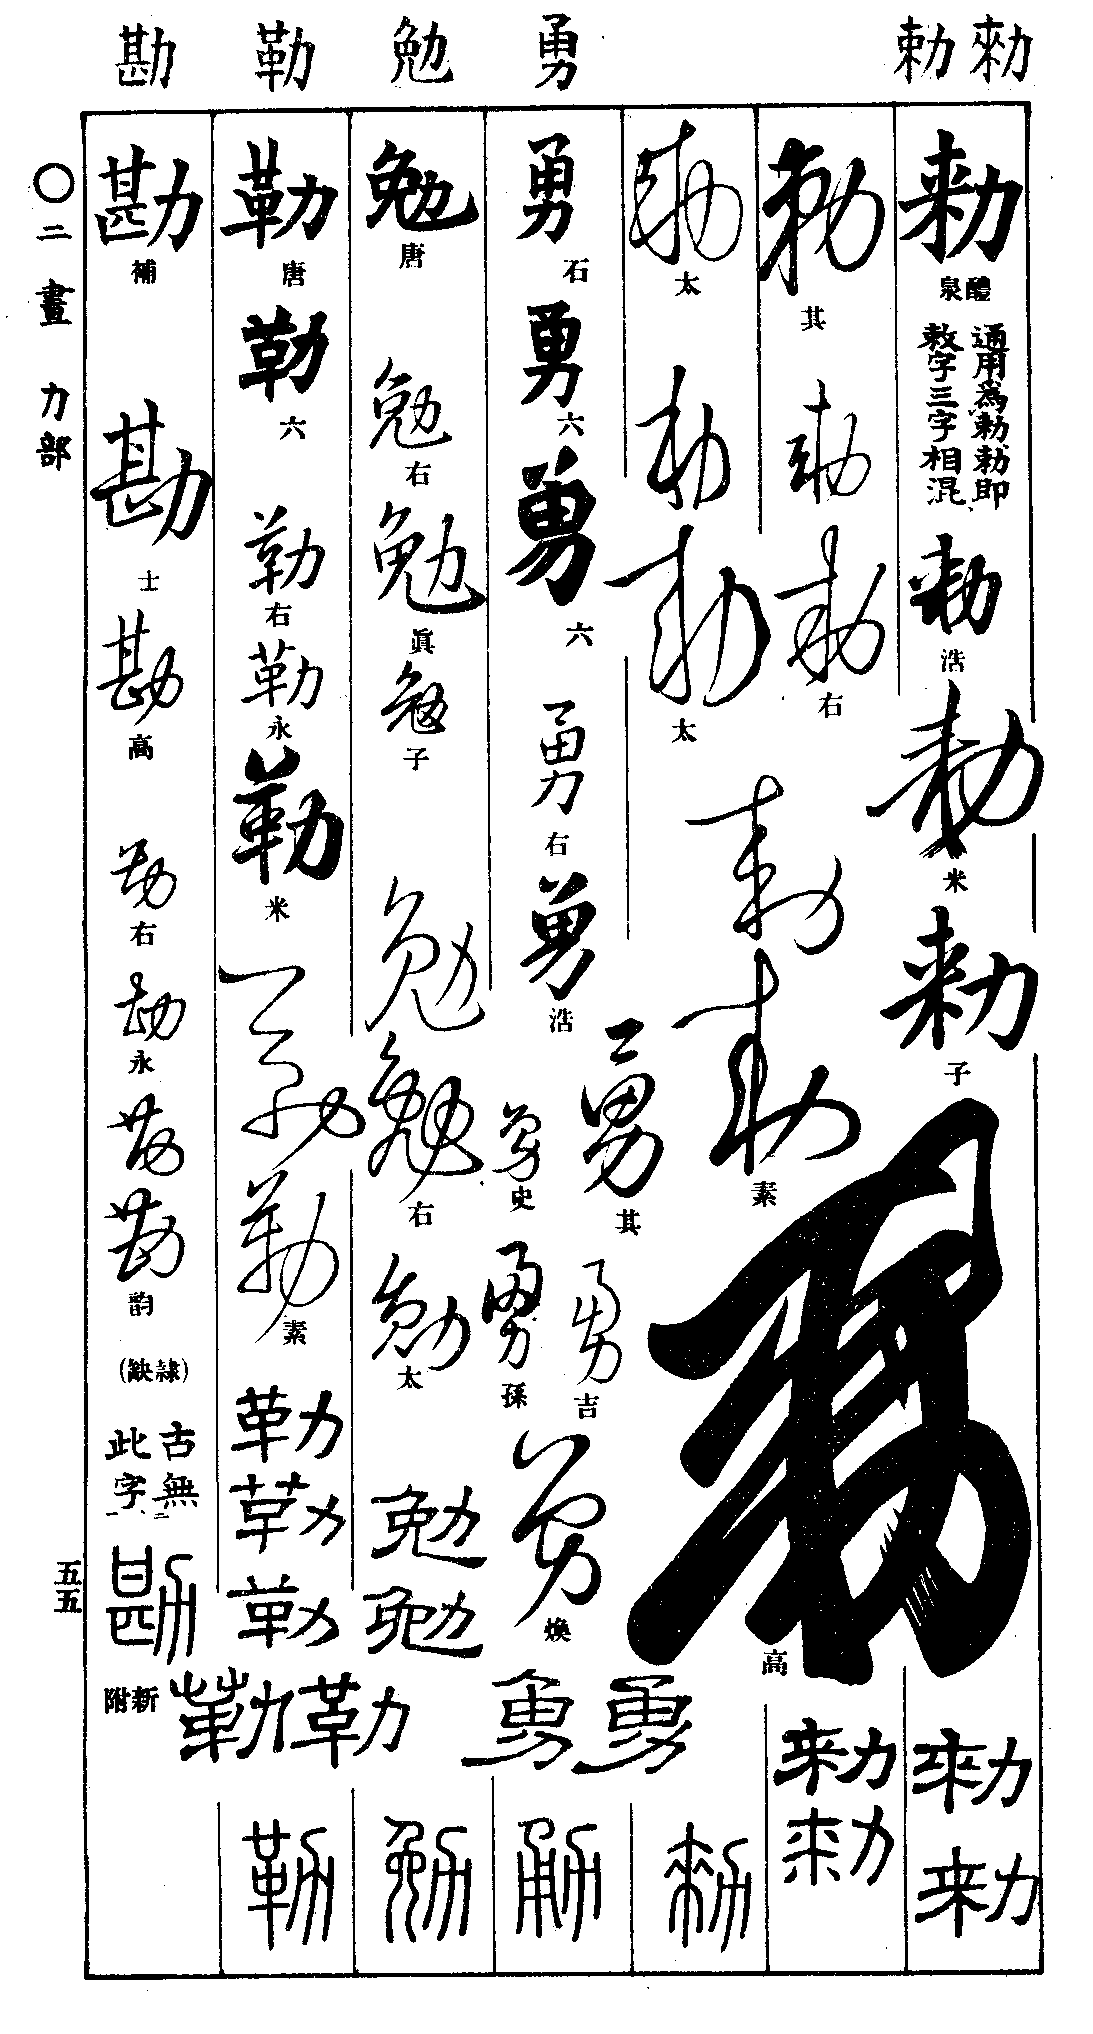 勑 勅
勇
勉
勒
勘
勑
醴泉
通用為勅勅即
敕字三字相混
勑
浩
勅
米
勑
子
勑
勑
勅
其
勅
勅
右
勑
勑
勅
太
勅
勅
太
勅
勅
素
勇
高
勑
勇
石
勇
六
勇
六
勇
右
勇
浩
勇
其
勇
史
勇
吉
勇
孫
勇
煥
勇
勇
勇
勉
唐
勉
右
勉
眞
勉
子
勉
勉
右
勉
太
勉
勉
勉
勒
唐
勒
六
勒
右
勒
永
勒
米
勒
勒
素
勒
勒
勒
勒
勒
勒
勘
補
勘
士
勘
高
勘
右
勘
永
勘
勘
韵
(隷缺)
古無
此字
勘
新附
〇二畫 力部
五五